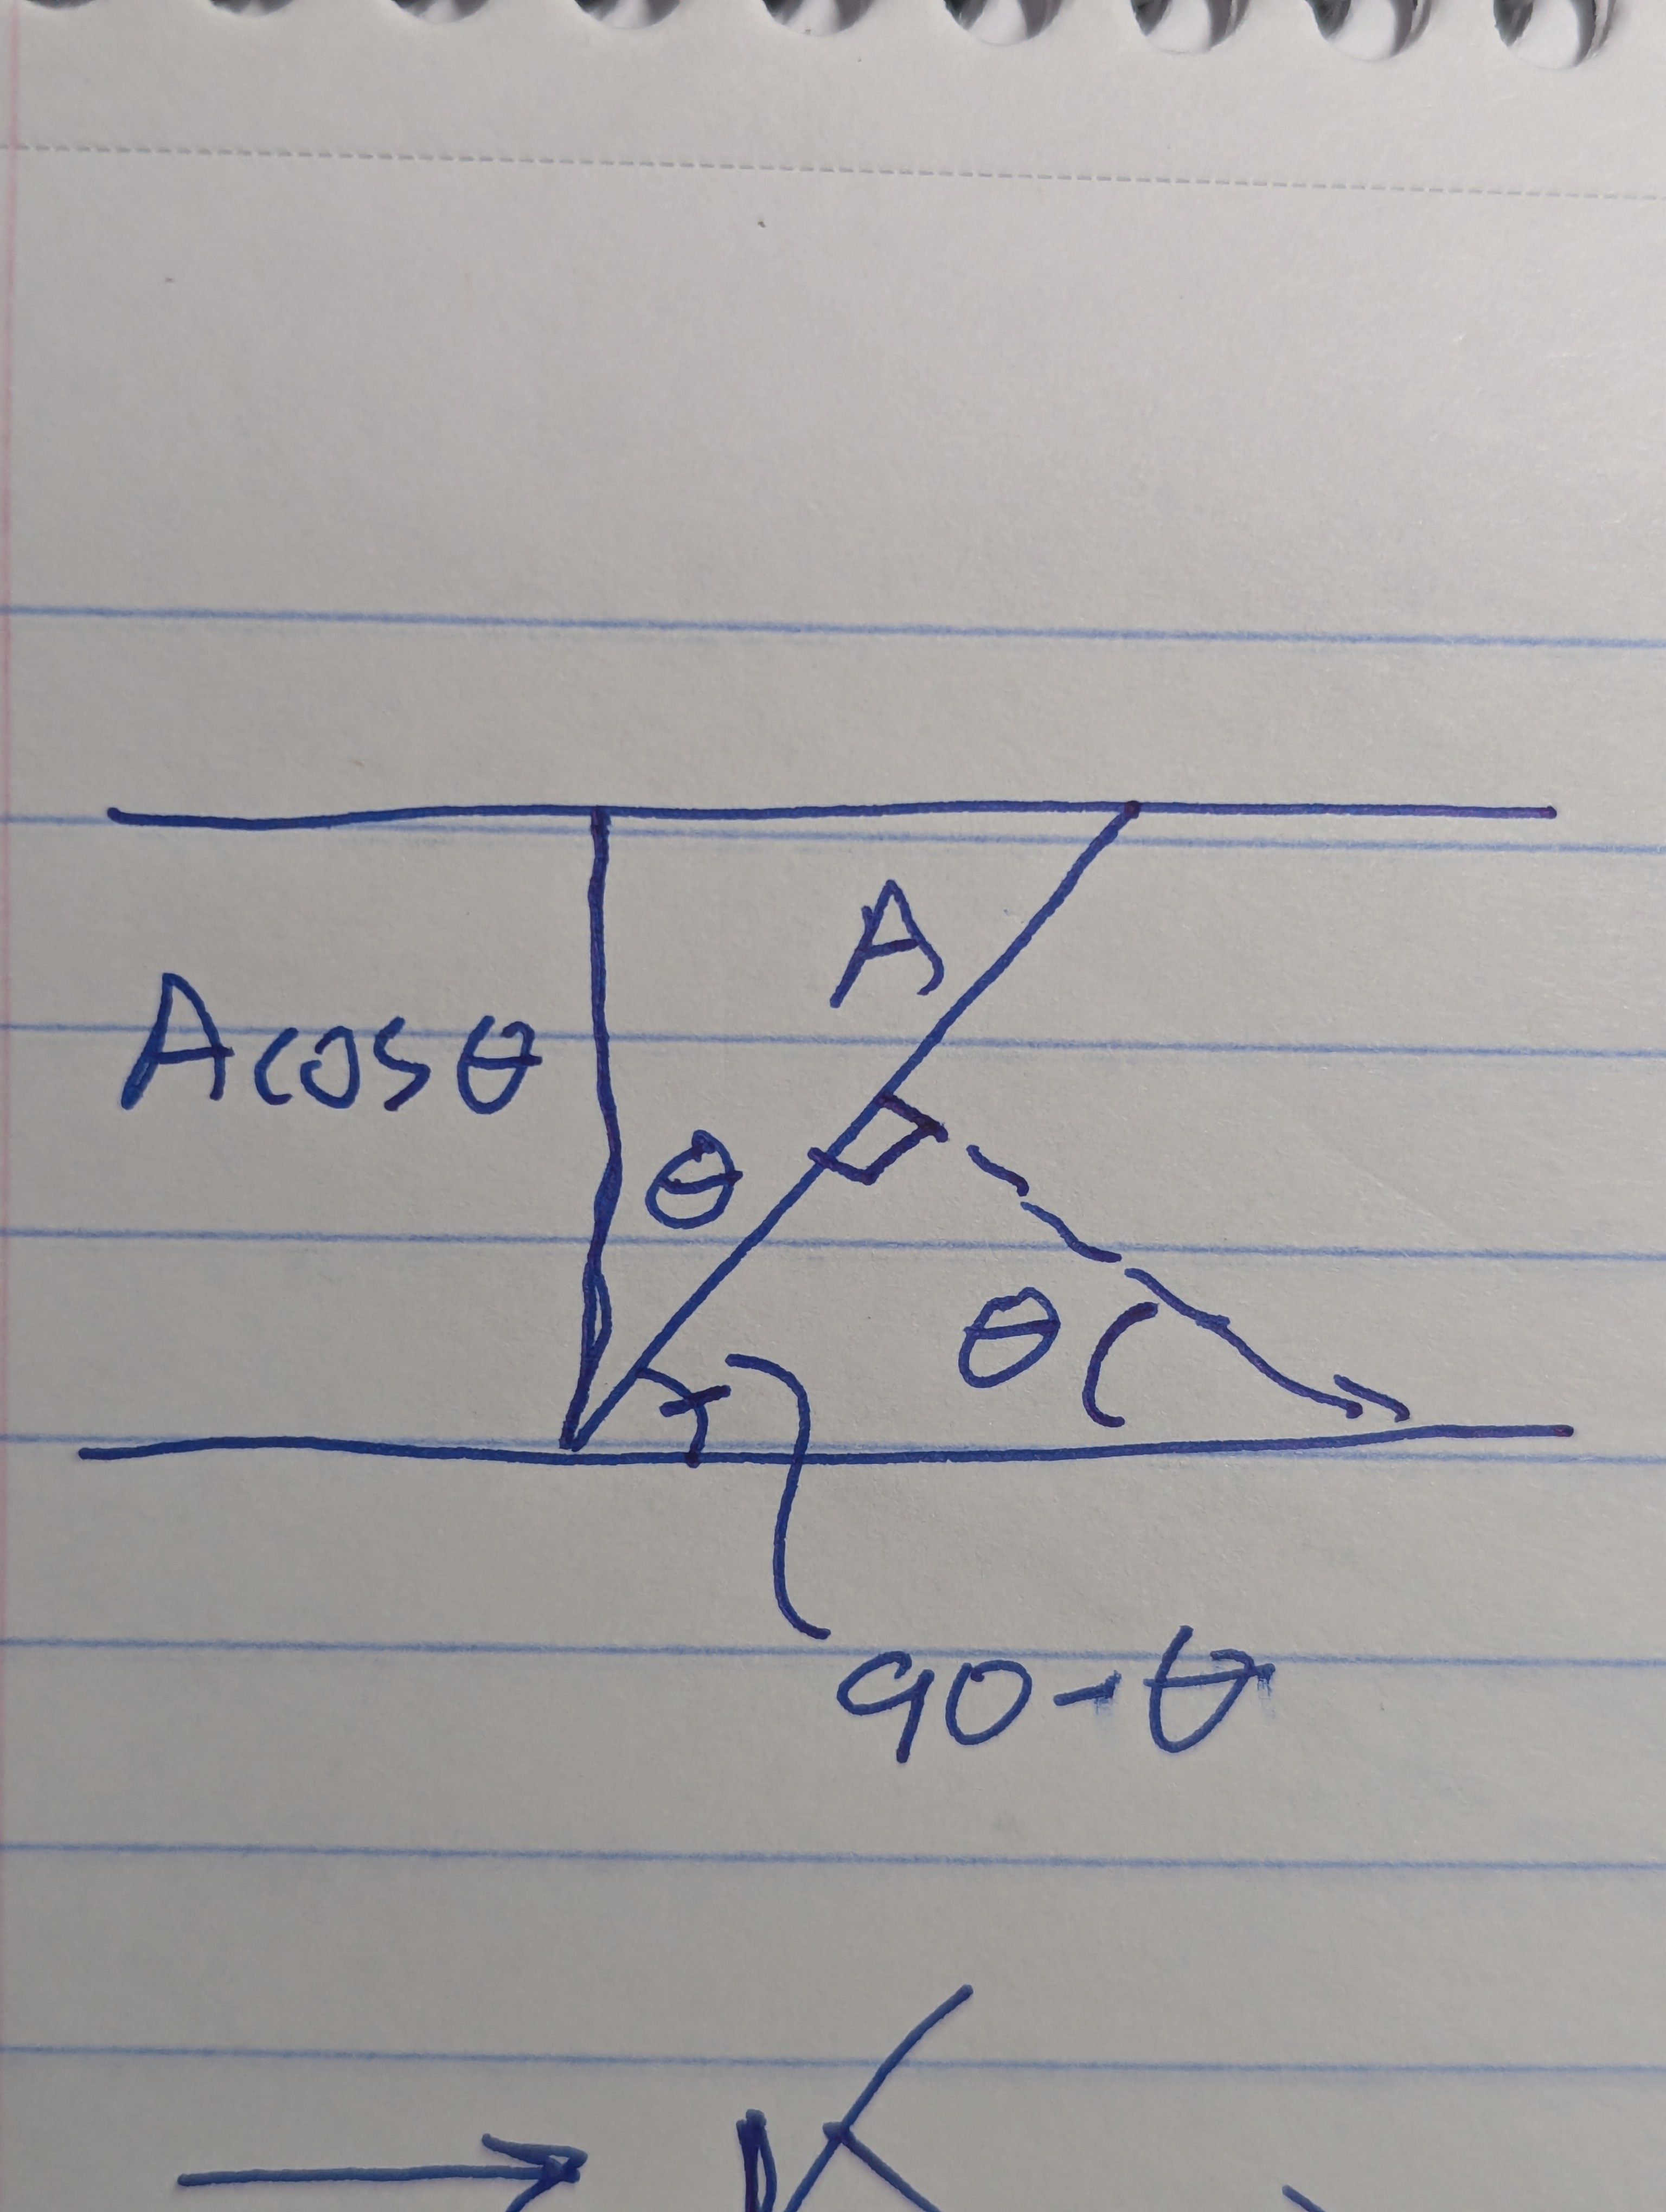 A
Acosθ
θ
θ
90-θ